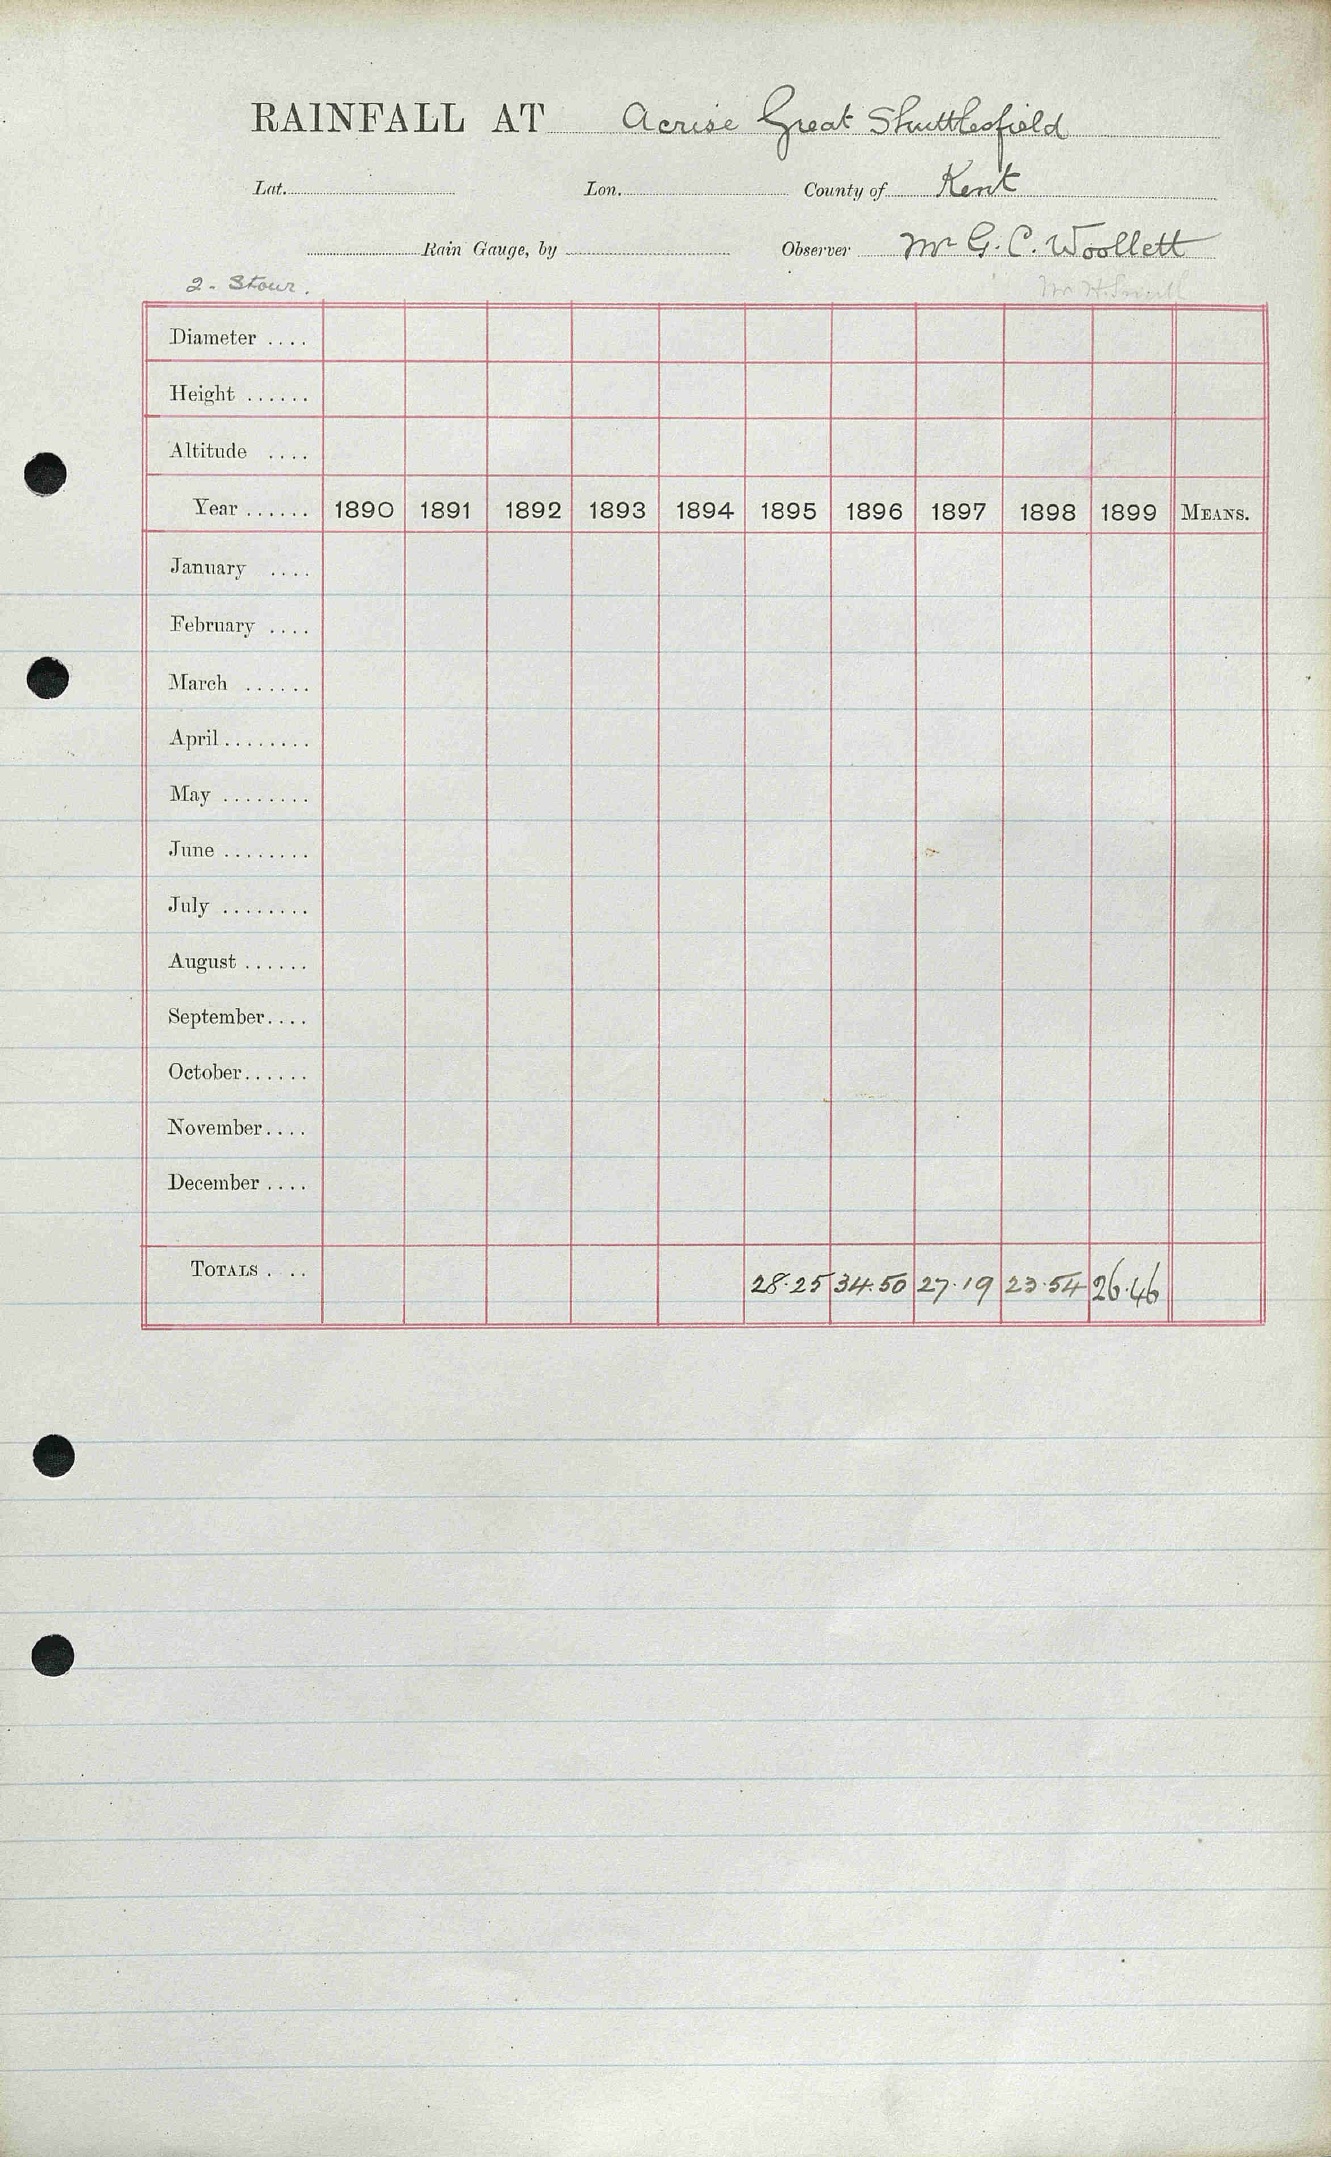 RAINFALL AT Acrise Great Shuttlesfield
Lat. Lon. County of Kent
Rain Gauge, by Observer Mr G. C. Woollett
2. Stour.
Diameter ....
Height ......
Altitude ....
Year ...... 1890 1891 1892 1893 1894 1895 1896 1897 1898 1899 MEANS.
January ....
February ....
March ......
April ........
May ........
June ........
July ........
August ......
September....
October......
November....
December ....
TOTALS . .. 28.25 34.50 27.19 23.54 26.46